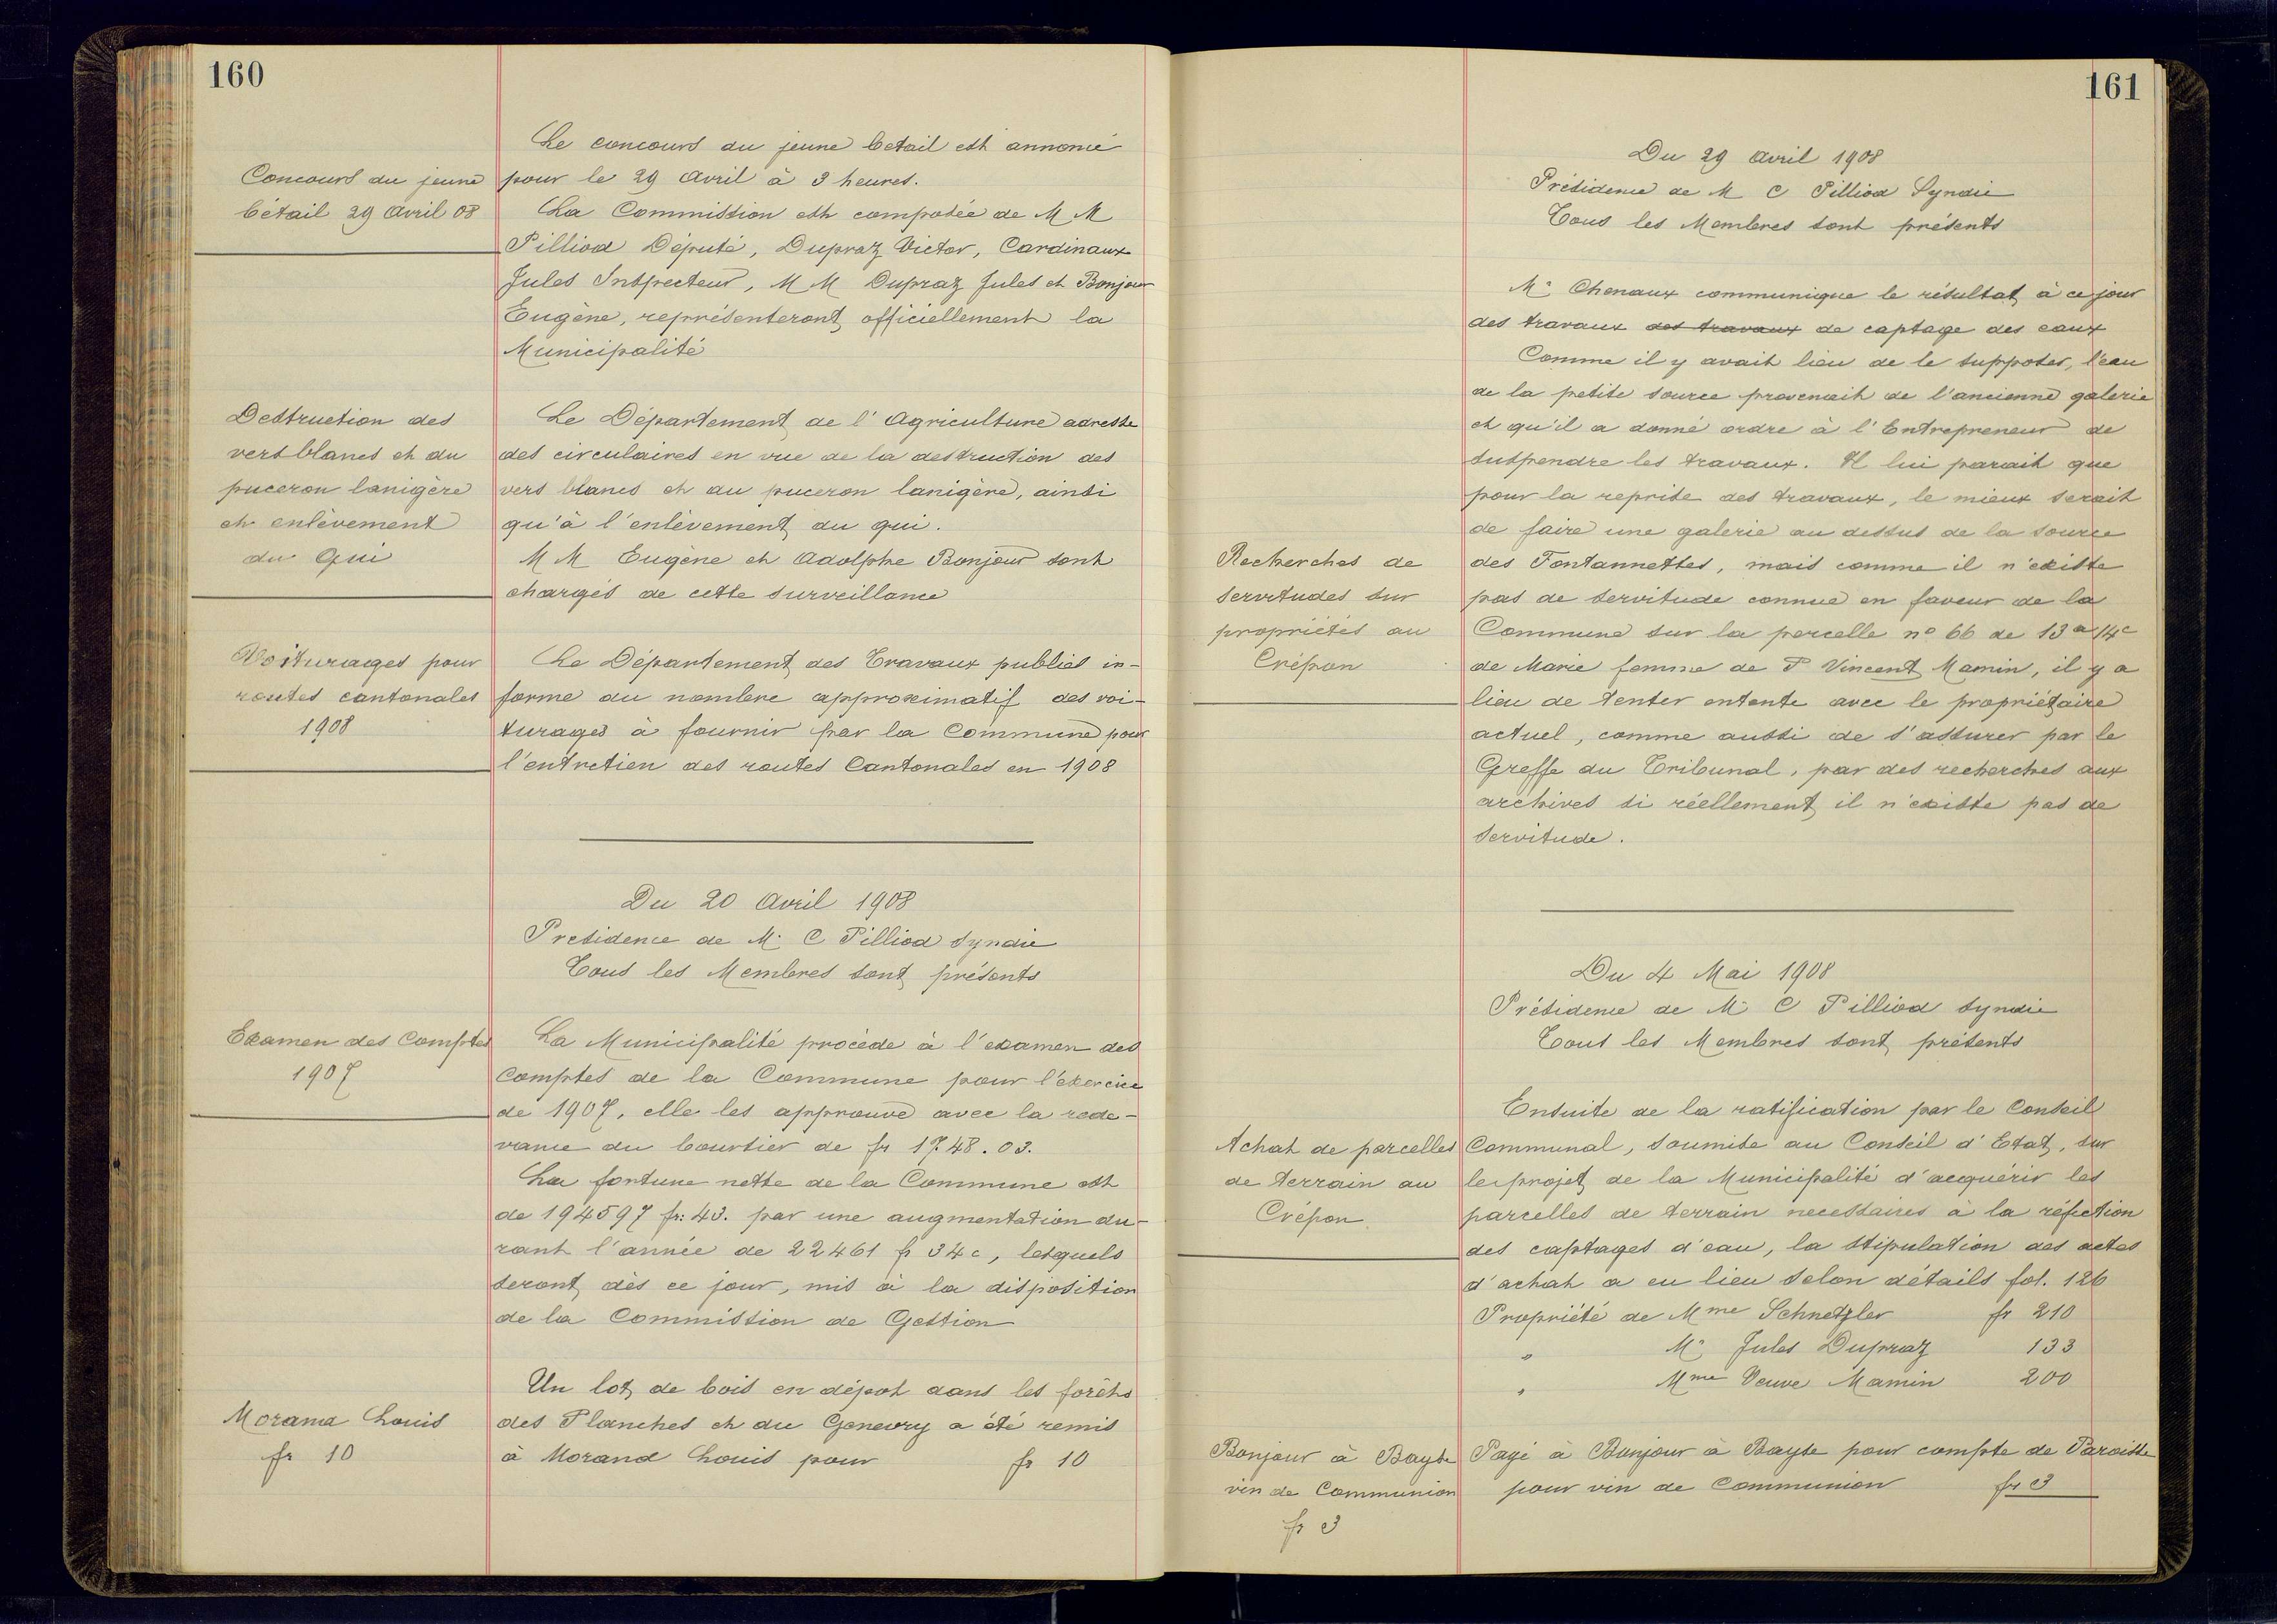 160
Le concours du jeune bétail est annoncé
Concours du jeune
bétail 29 Avril 08
pour le 29 Avril à 3 heures.
La Commission est composée de M M
Pilliod Député, Dupraz Victor, Cardinaux
Jules Inspecteur, M M Dupraz Jules et Bonjour
Eugène, représenteront officiellement la
Municipalité
Destruction des
vers blancs et du
puceron lanigère
et enlèvement
du Gui
Le Département de l'Agriculture adresse
des circulaires en vue de la destruction des
vers blancs et du puceron lanigère, ainsi
qu'à l'enlèvement du gui.
M M Eugène et Adolphe Bonjour sont
chargés de cette surveillance
Voiturages pour
routes cantonales
1908
Le Département des Travaux publics in-
forme du nombre approximatif des voi-
turages à fournir par la Commune pour
l'entretien des routes Cantonales en 1908
Du 20 Avril 1908
Présidence de Mr C Pilliod Syndic
Tous les Membres sont présents
Examen des Comptes
1907
La Municipalité procède à l'examen des
Comptes de la Commune pour l'exercice
de 1907, elle les approuve avec la rede-
vance du boursier de fr 1748.03.
La fortune nette de la Commune est
de 194597 fr: 43. par une augmentation du-
rant l'année de 22461 fr 34 c, lesquels
seront, dès ce jour, mis à la disposition
de la Commission de Gestion
Morand Louis
fr 10
Un lot de bois en dépot dans les forêts
des Planches et du Genevry a été remis
à Morand Louis pour fr 10
161
Du 29 Avril 1908
Présidence de M C Pilliod Syndic
Tous les Membres sont présents
Mr Chenaux communique le résultat à ce jour
des travaux des travaux de captage des eaux
Comme il y avait lieu de le supposer, l'eau
de la petite source provenait de l'ancienne galerie
et qu'il a donné ordre à l'Entrepreneur de
suspendre les travaux. Il lui parait que
pour la reprise des travaux, le mieux serait
de faire une galerie au dessus de la source
Recherches de
servitudes sur
propriétés au
Crépon
des Fontannettes, mais comme il n'existe
pas de servitude connue en faveur de la
Commune sur la parcelle no 66 de 13 a 14 c
de Marie femme de P Vincent Mamin, il y a
lieu de tenter entente avec le propriétaire
actuel, comme aussi de s'assurer par le
Greffe du Tribunal, par des recherches aux
archives si réellement il n'existe pas de
servitude.
Du 4 Mai 1908
Présidence de Mr C Pilliod Syndic
Tous les Membres sont présents
Achat de parcelles
de terrain au
Crépon
Ensuite de la ratification par le Conseil
Communal, soumise au Conseil d'Etat, sur
le projet de la Municipalité d'acquérir les
parcelles de terrain necessaires à la réfection
des captages d'eau, la stipulation des actes
d'achat a eu lieu selon détails fol. 126
Propriété de Mme Schnetzler fr 210
" Mr Jules Dupraz 133
" Mme Veuve Mamin 200
Bonjour à Bayse
vin de Communion
fr 3
Payé à Bonjour à Bayse pour compte de Paroisse
pour vin de Communion fr 3